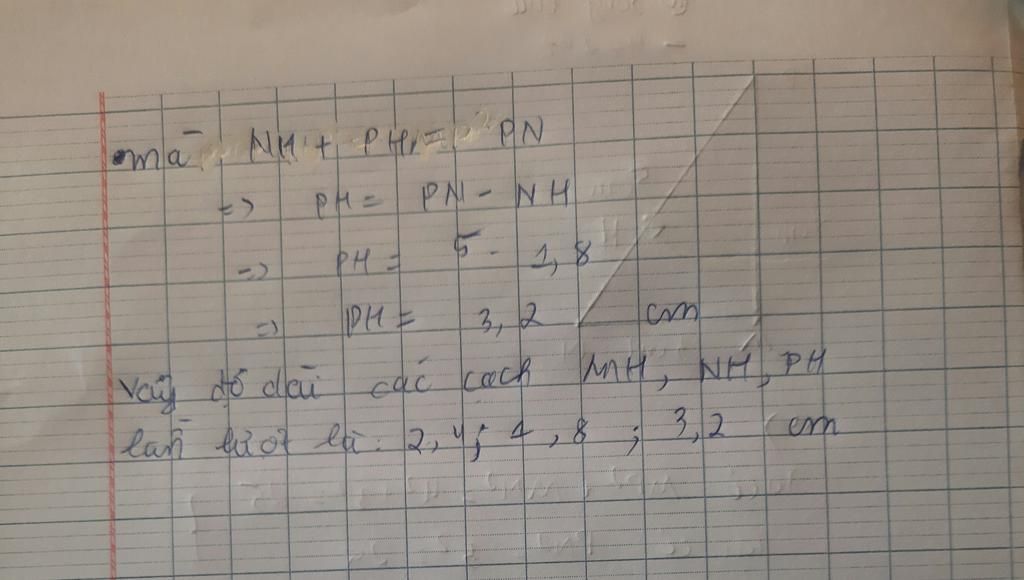 mà NH + PH = PN
=> PH = PN - NH
=> PH = 5 - 1,8
=> PH = 3,2 cm
Vậy độ dài các cạch MH, NH, PH
lần lượt là: 2,4; 1,8; 3,2 cm